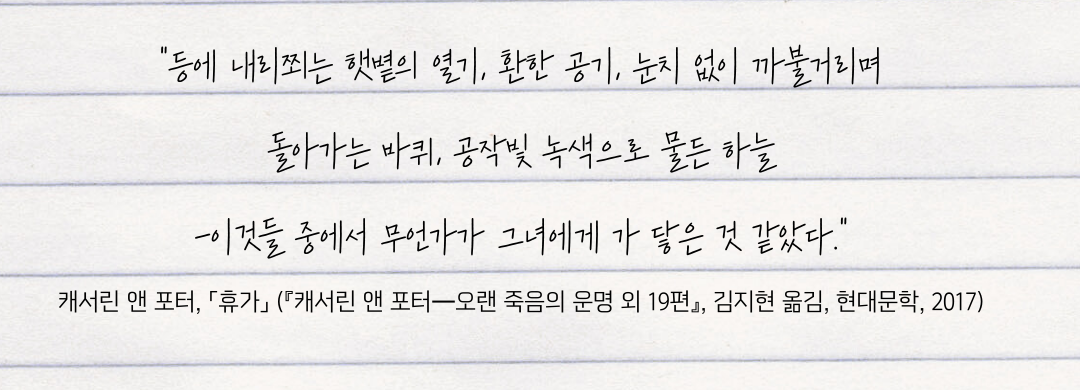 "등에 내리쬐는 햇볕의 열기, 환한 공기, 눈치 없이 까불거리며
돌아가는 바퀴, 공작빛 녹색으로 물든 하늘
-이것들 중에서 무언가가 그녀에게 가 닿은 것 같았다."
캐서린 앤 포터, 「휴가」 (『캐서린 앤 포터―오랜 죽음의 운명 외 19편』, 김지현 옮김, 현대문학, 2017)